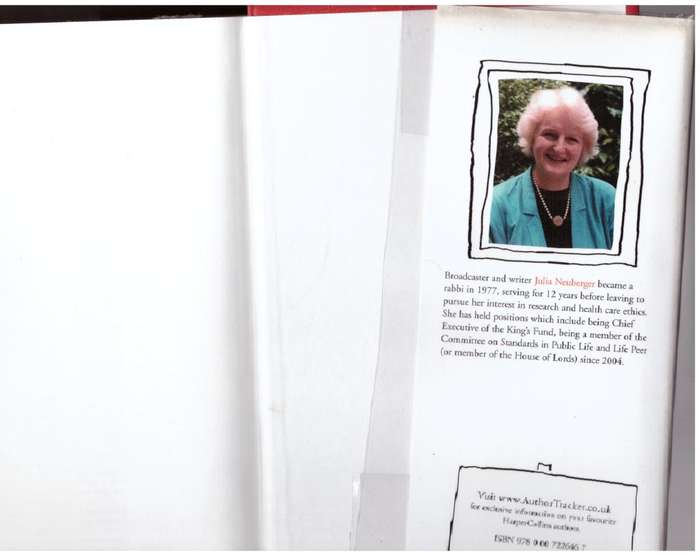 Broadcaster and writer Julia Neuberger became a
rabbi in 1977, serving for 12 years before leaving to
pursue her interest in research and health care ethics.
She has held positions which include being Chief
Executive of the King's Fund, being a member of the
Committee on Standards in Public Life and Life Peer
(or member of the House of Lords) since 2004.
Visit www.AuthorTracker.co.uk
for exclusive information on your favourite
HarperCollins authors.
ISBN 978 0 00 722646 7